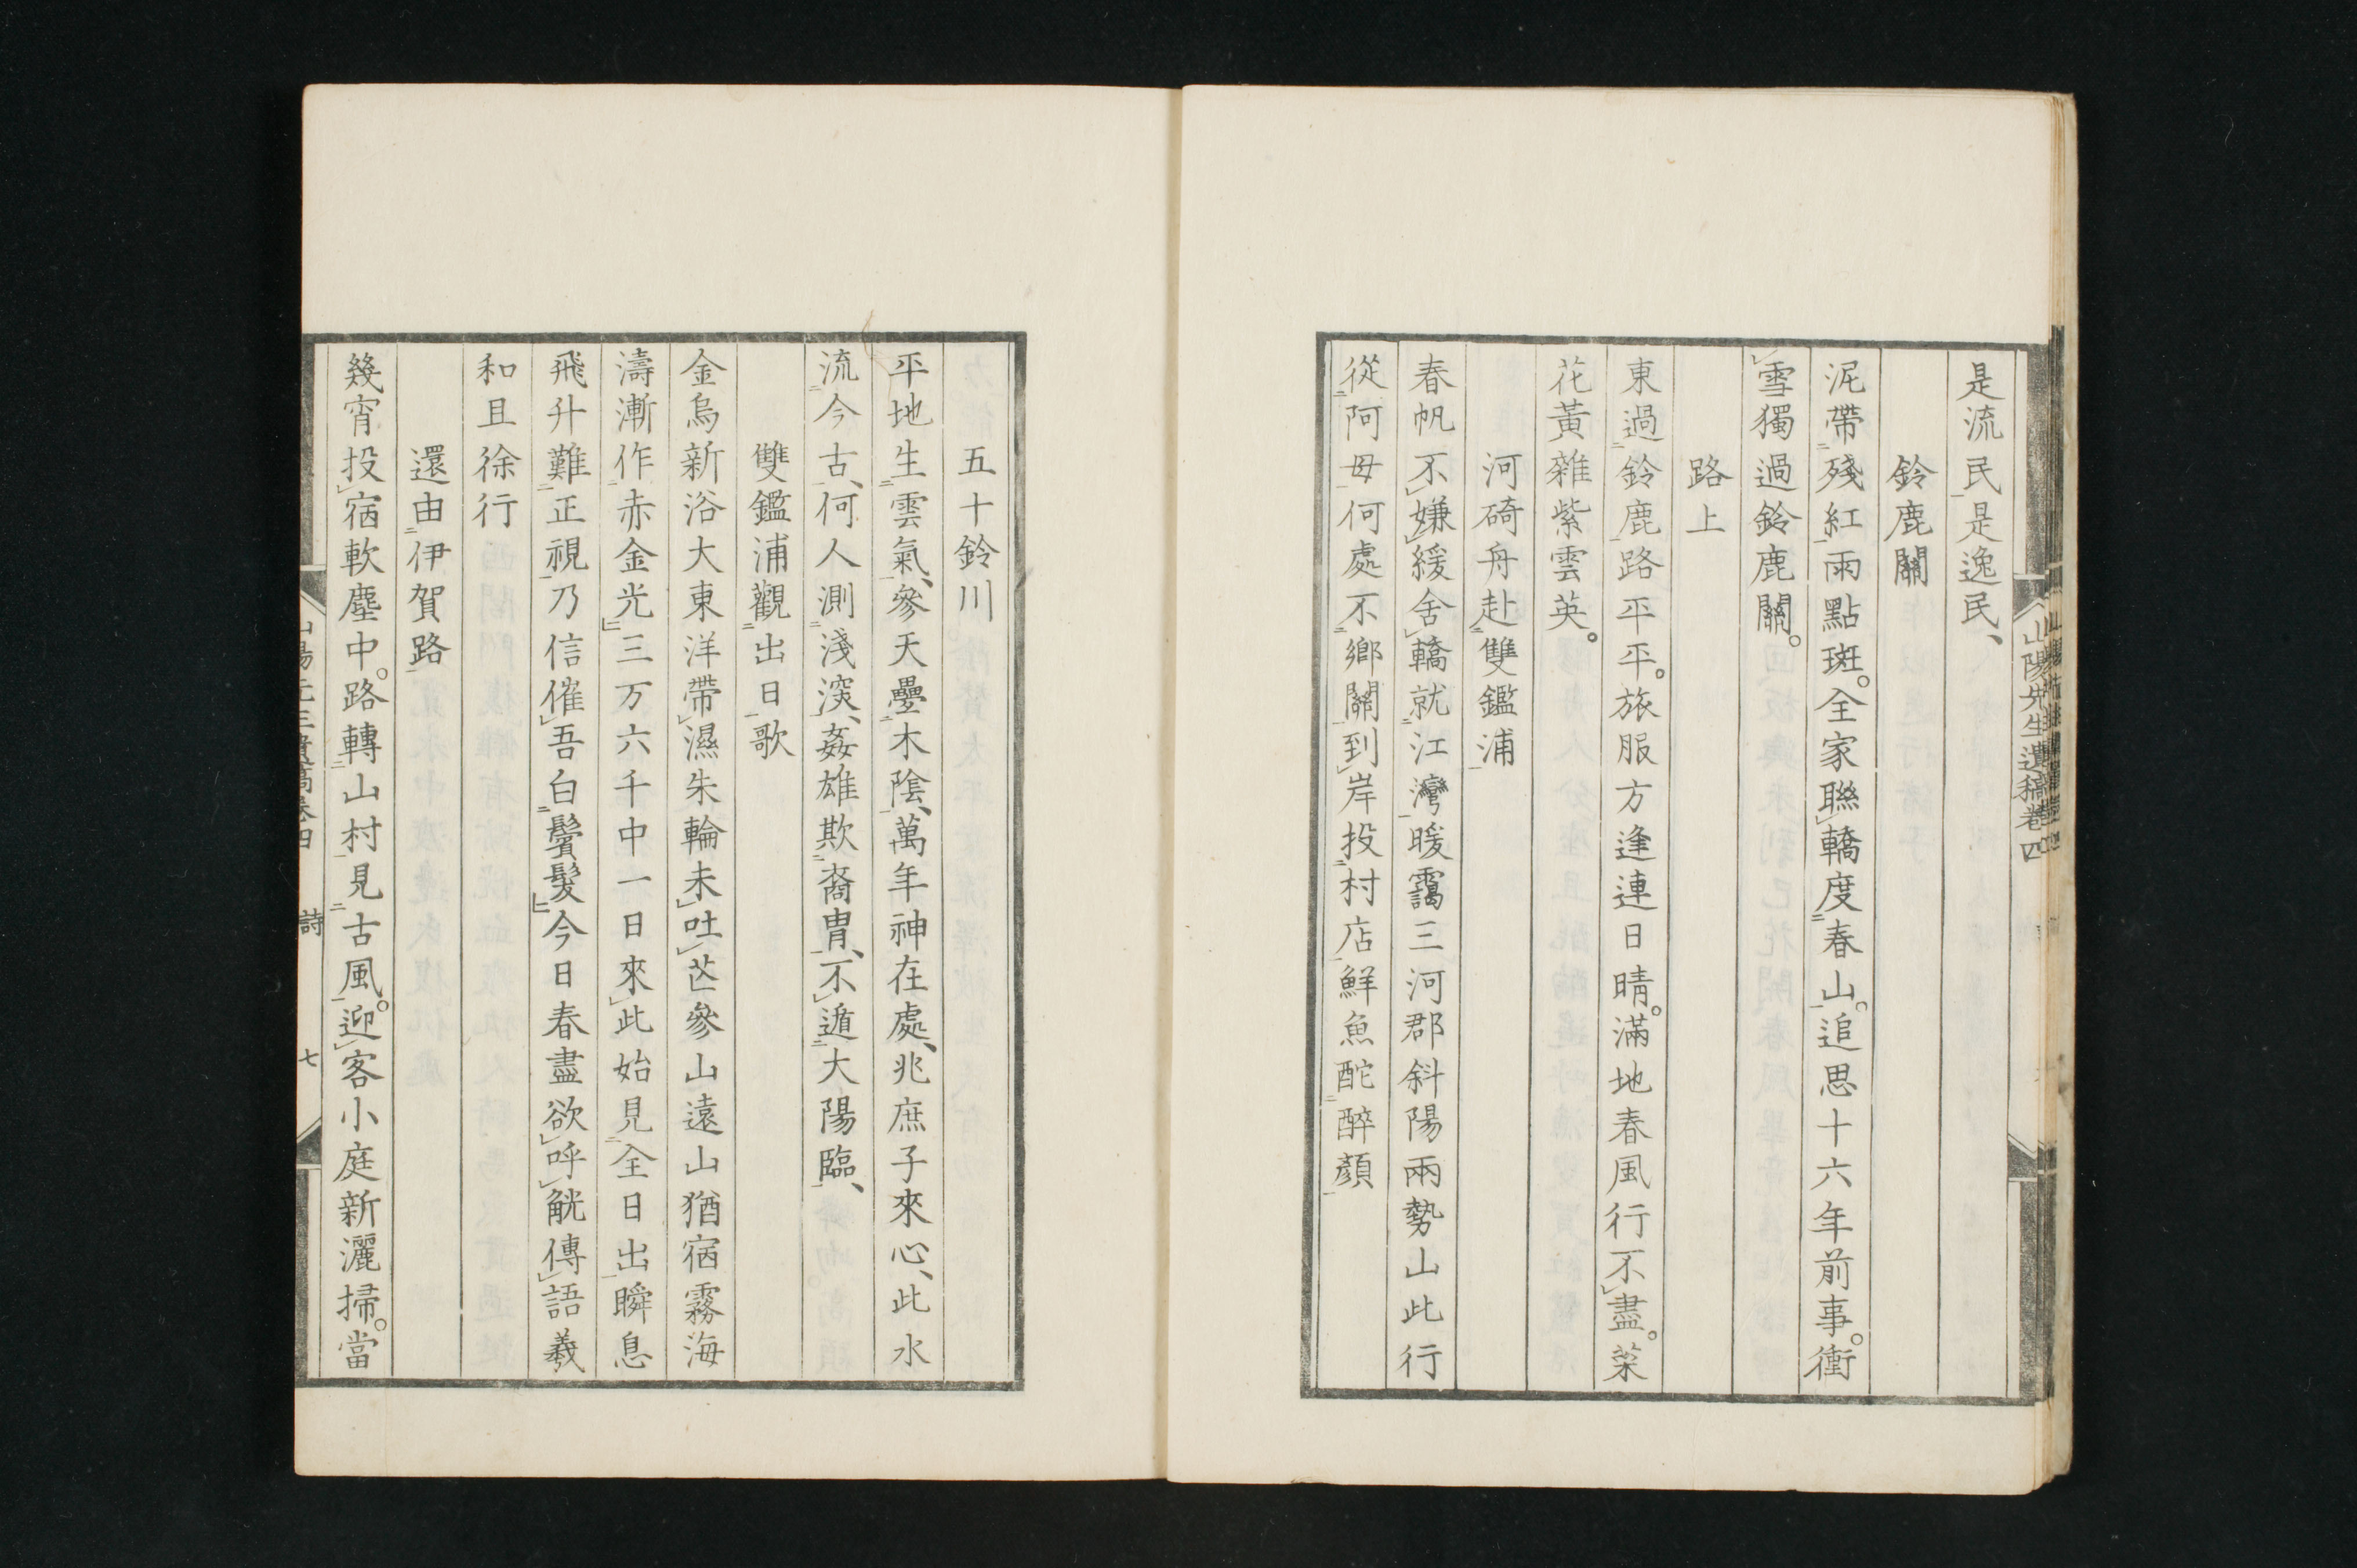 山陽先生遺稿卷四
是流民是逸民、
鈴鹿關
泥帶殘紅雨點斑。全家聯轎度春山。追思十六年前事。衝
雪獨過鈴鹿關。
路上
東過鈴鹿路平平。旅服方逢連日晴。滿地春風行不盡。菜
花黃雜紫雲英。
河碕舟赴雙鑑浦
春帆不嫌緩舍轎就江灣暖靄三河郡斜陽兩勢山此行
從阿母何處不鄉關到岸投村店鮮魚酡醉顏
五十鈴川
平地生雲氣、參天疊木陰、萬年神在處、兆庶子來心、此水
流今古、何人測淺深、姦雄欺裔冑、不遁大陽臨、
雙鑑浦觀出日歌
金烏新浴大東洋帶濕朱輪未吐芒參山遠山猶宿霧海
濤漸作赤金光三万六千中一日來此始見全日出瞬息
飛升難正視乃信催吾白鬢髮今日春盡欲呼觥傳語羲
和且徐行
還由伊賀路
幾宵投宿軟塵中。路轉山村見古風。迎客小庭新灑掃。當
詩
七